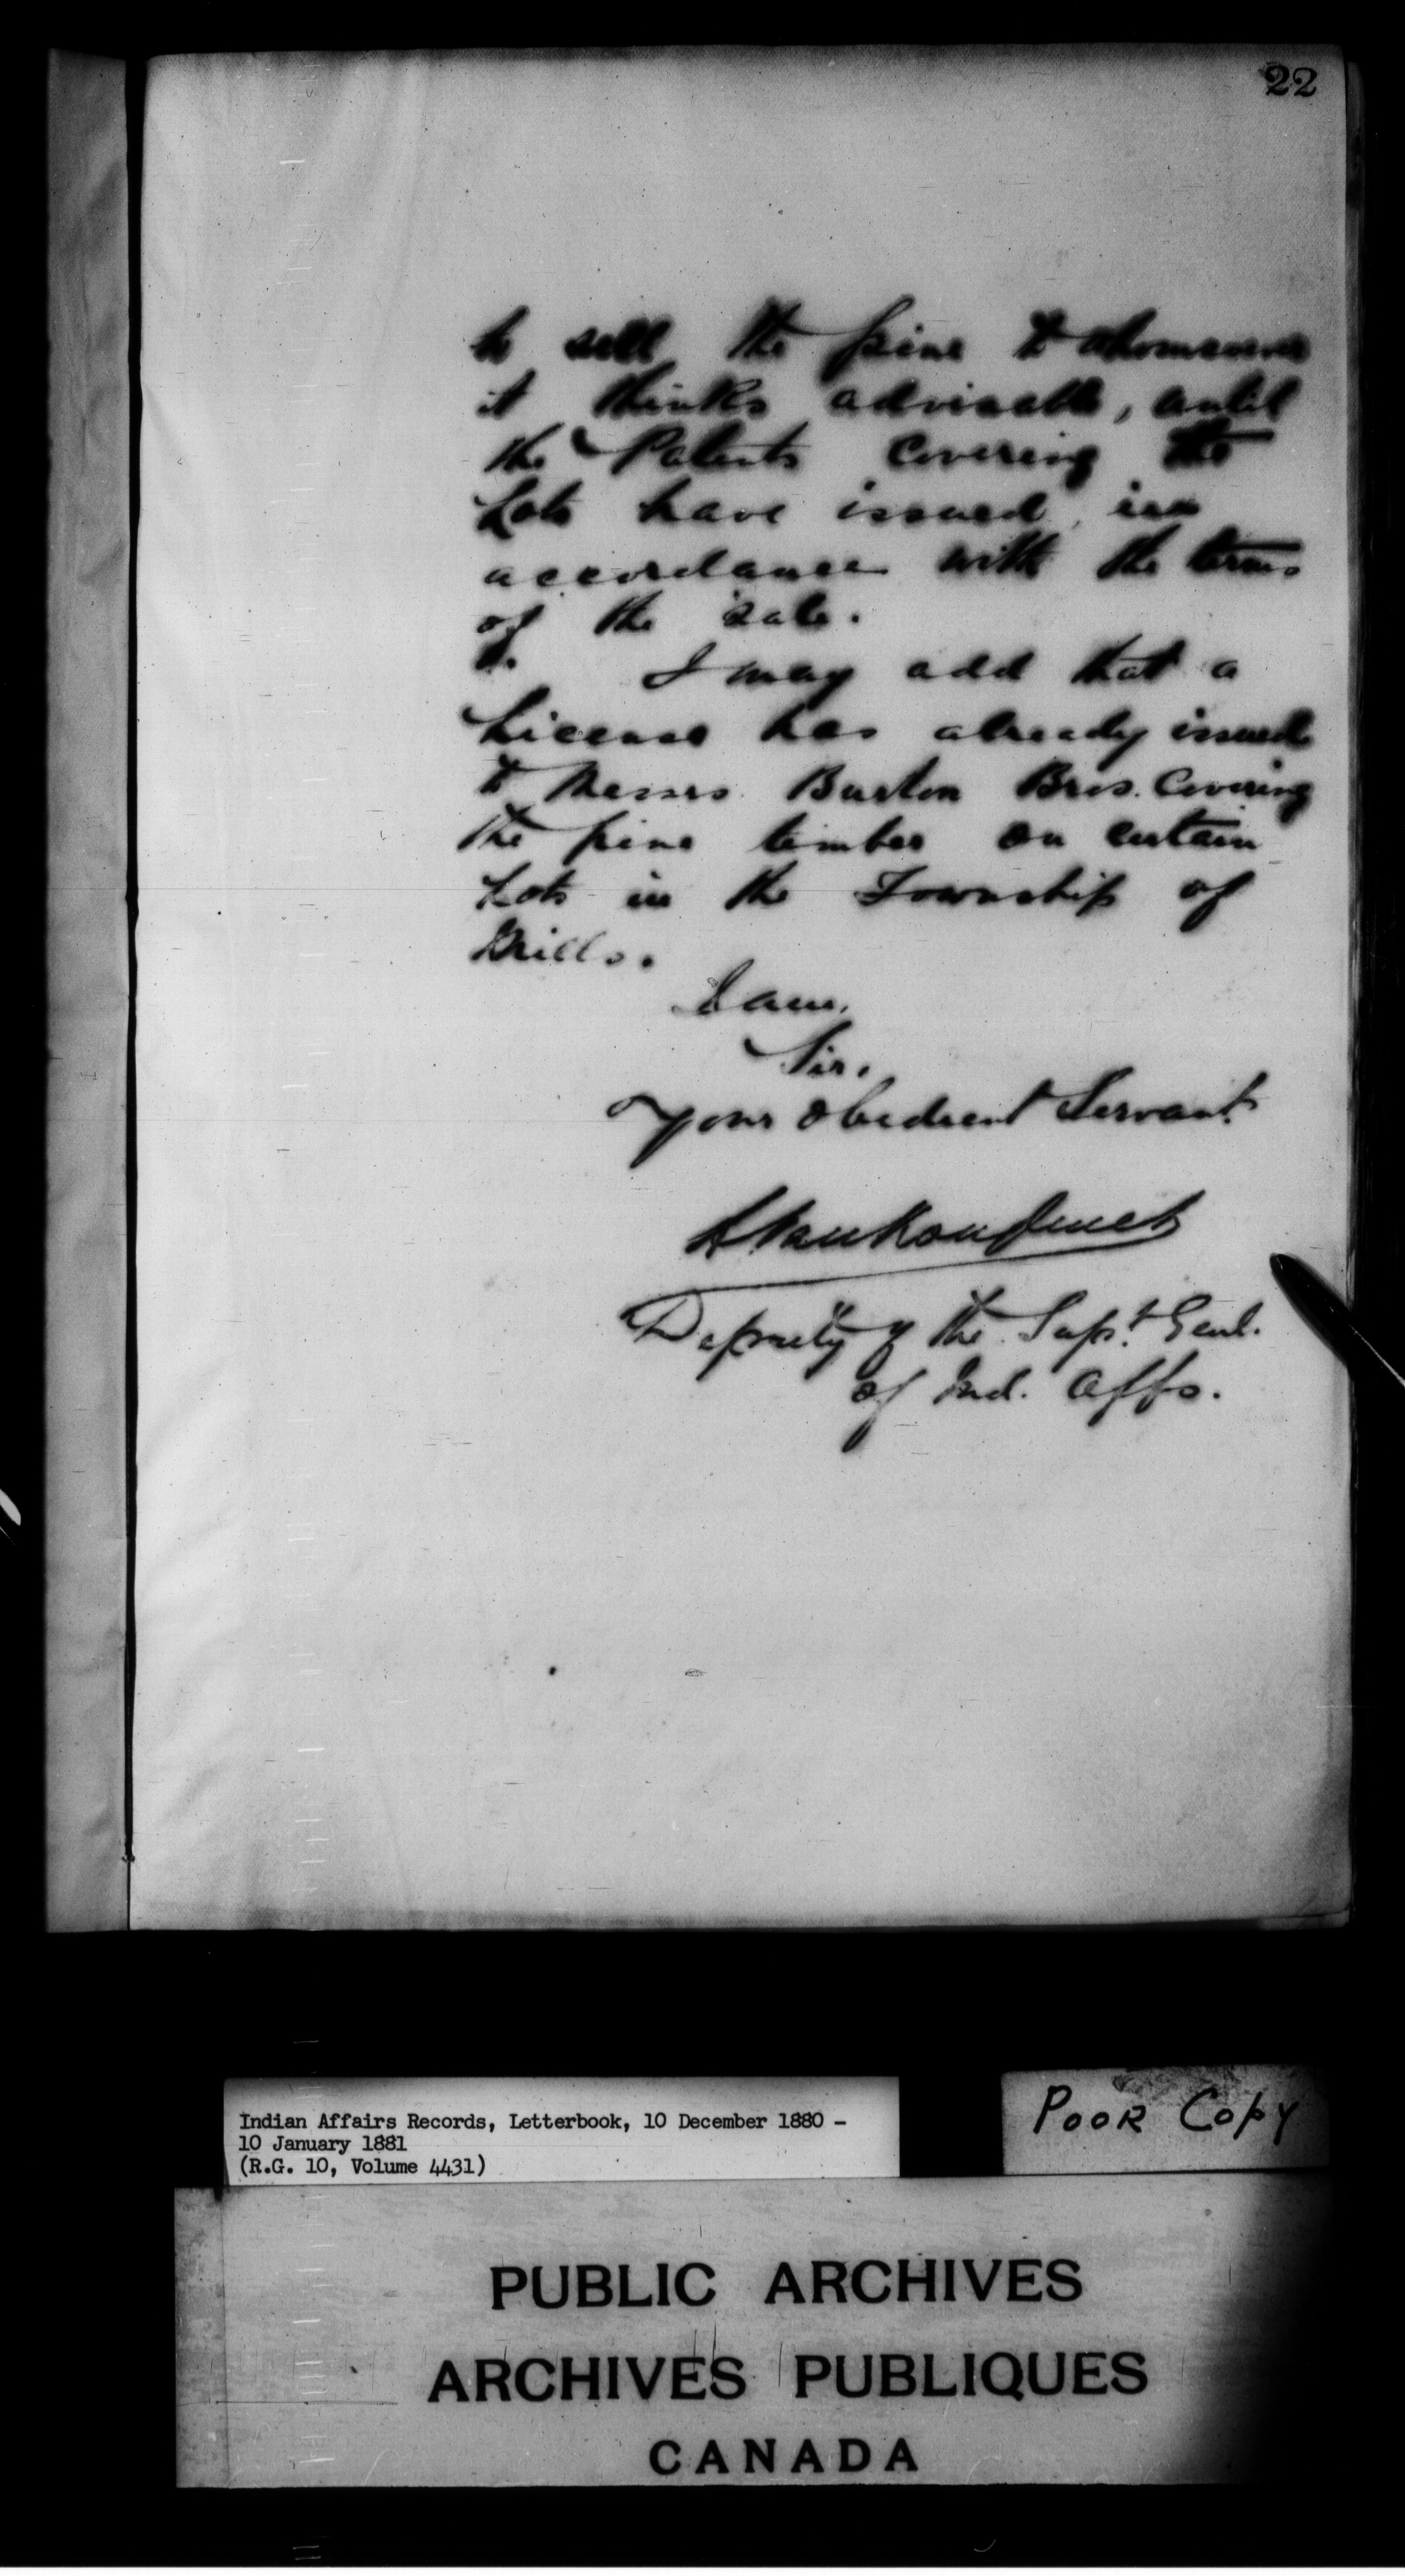 22
to sell the pine to whomsoever
it thinks advisable, until
the Patents covering the
Lots have issued, in
accordance with the terms
of the sale.
I may add that a
License has already issued
to Messrs. Burton Bros. Covering
the pine timber on certain
Lots in the Township of
Mills.
I am,
Sir,
Your obedient Servant
L VanKoughnet
Deputy of the Supt. Genl.
of Ind. Affs.
Indian Affairs Records, Letterbook, 10 December 1880 -
10 January 1881
(R.G. 10, Volume 4431)
POOR COPY
PUBLIC ARCHIVES
ARCHIVES PUBLIQUES
CANADA